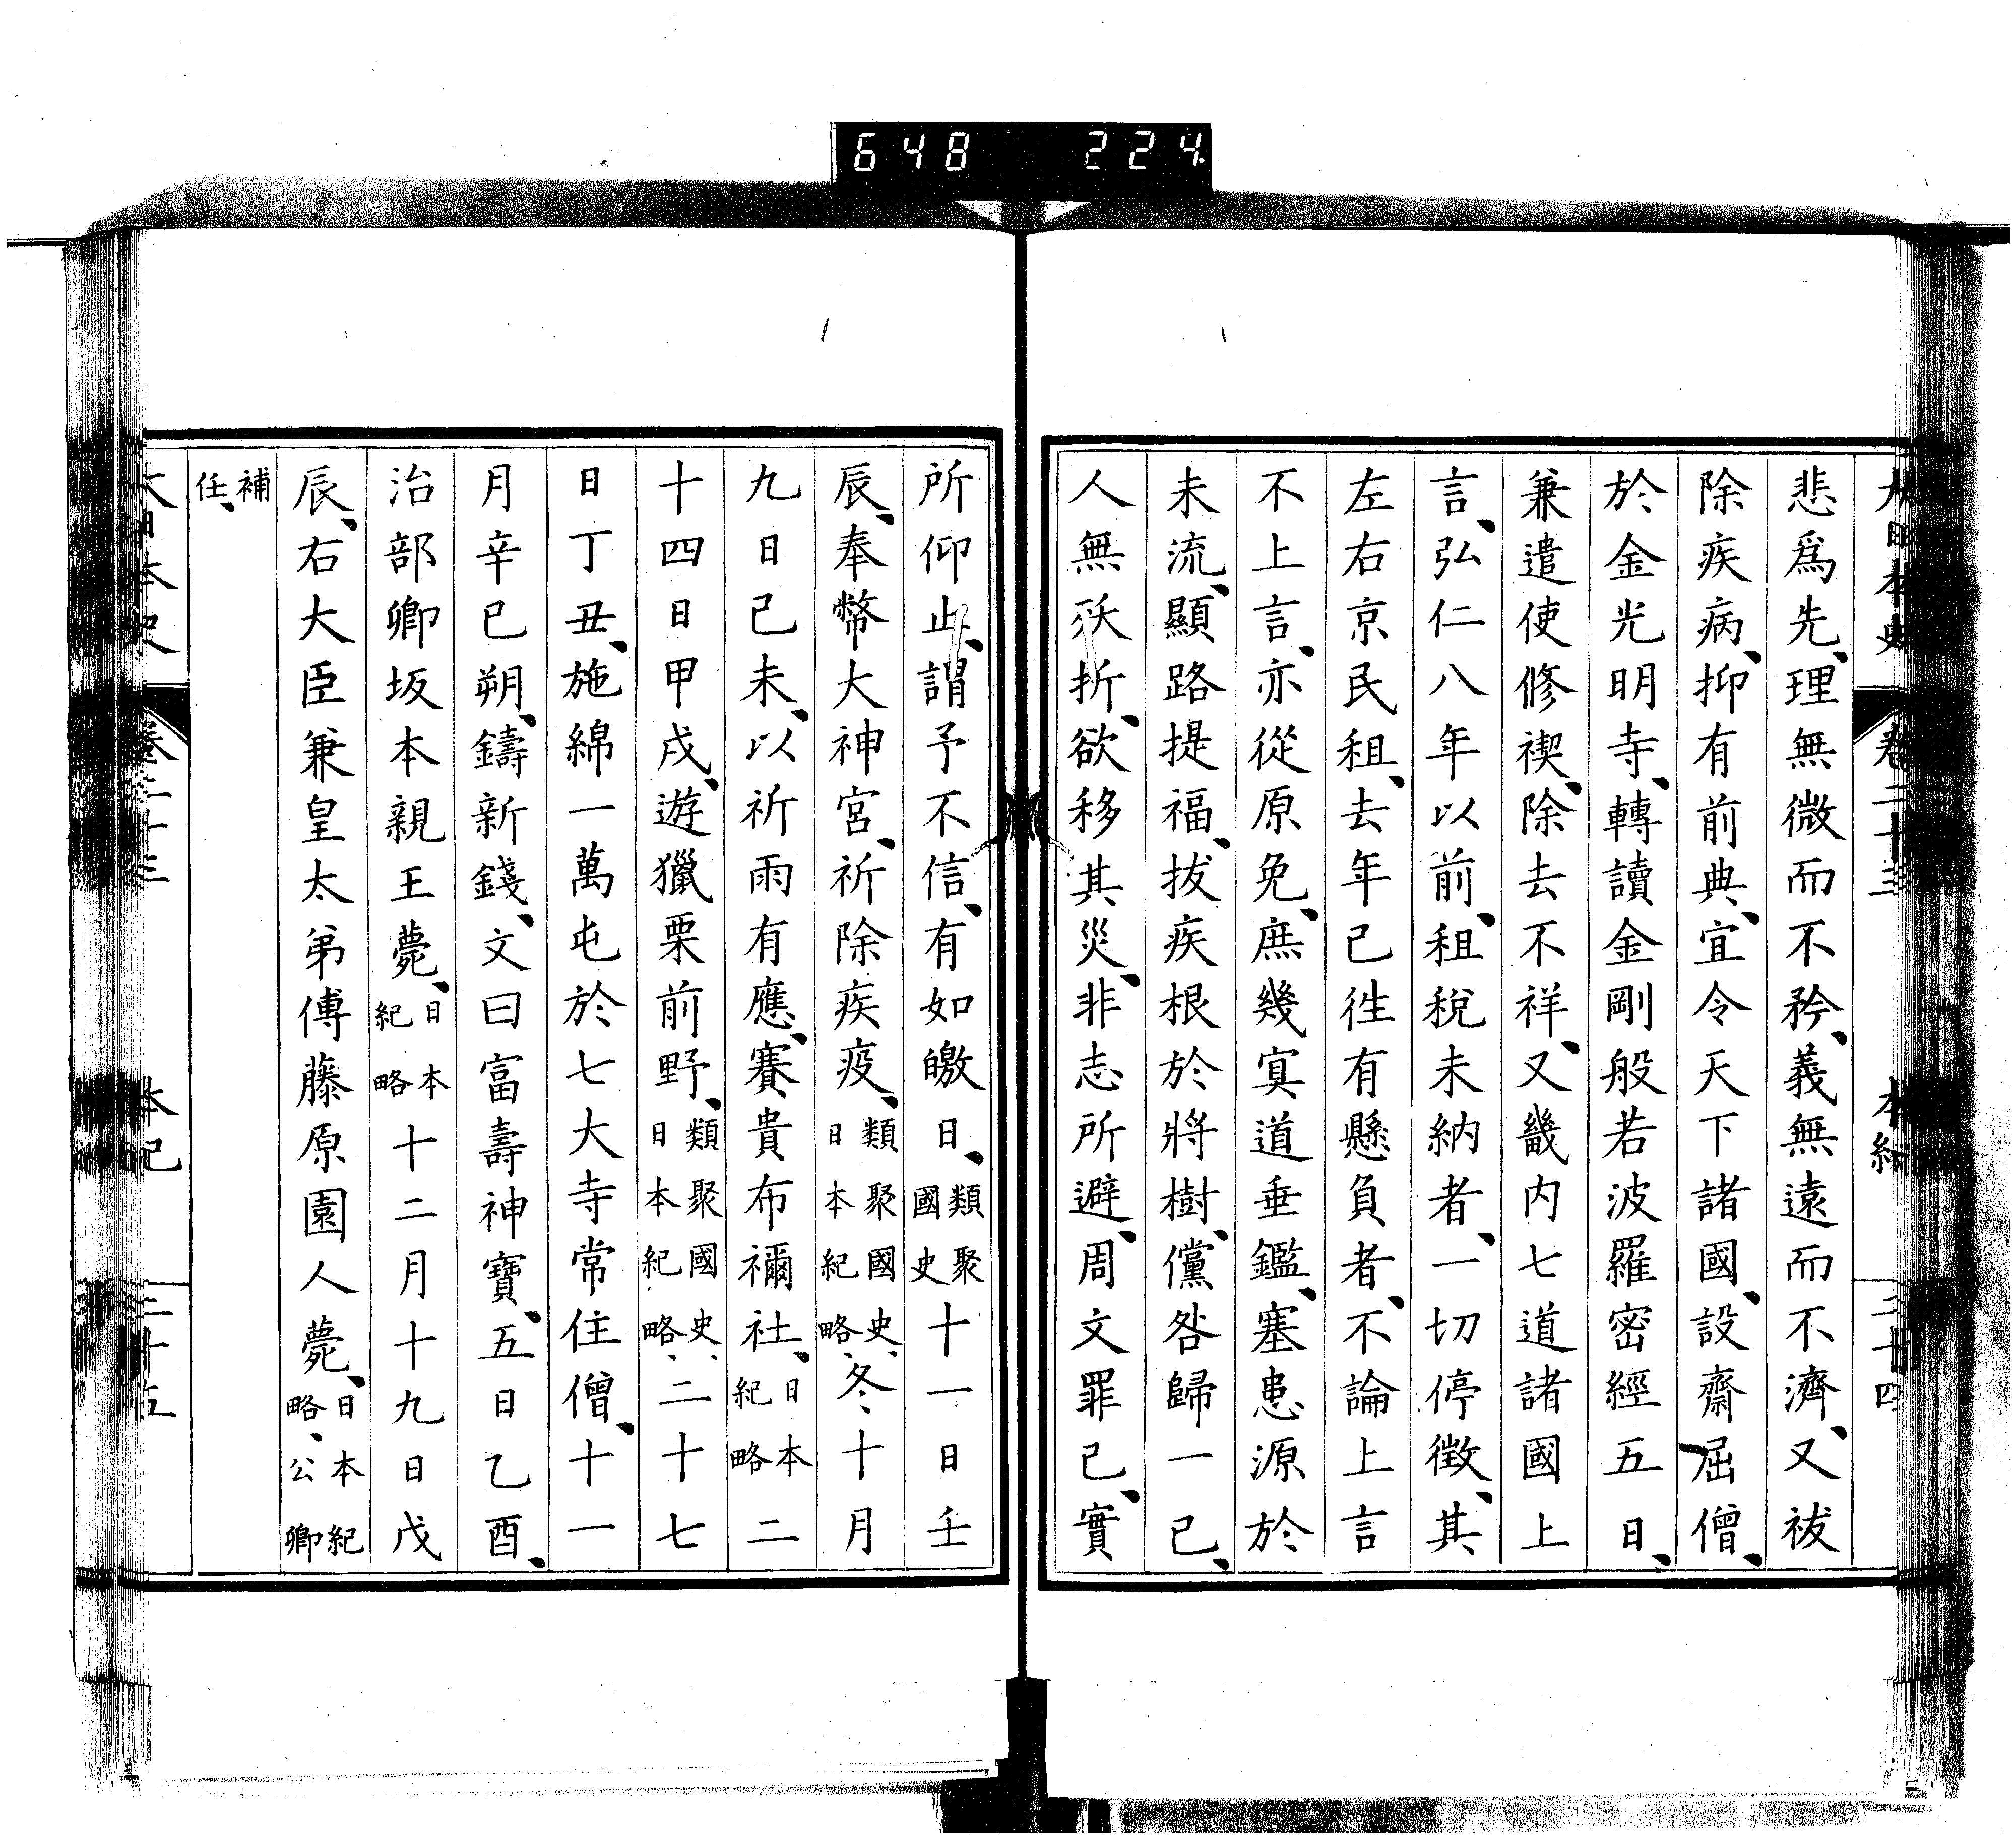 648 224
大日本史 卷二十三 本紀 三十四
悲爲先、理無微而不矜、義無遠而不濟、又祓
除疾病、抑有前典、宜令天下諸國、設齋屈僧、
於金光明寺、轉讀金剛般若波羅密經五日、
兼遣使修禊、除去不祥、又畿内七道諸國上
言、弘仁八年以前、租稅未納者、一切停徵、其
左右京民租、去年已徃有懸負者、不論上言
不上言、亦從原免、庶幾寞道垂鑑、塞患源於
未流、顯路提福、拔疾根於將樹、儻咎歸一已、
人無殀折、欲移其災、非志所避、周文罪已、實
所仰止、謂予不信、有如皦日、類聚國史十一日壬
辰、奉幣大神宮、祈除疾疫、類聚國史、日本紀略、冬十月
九日己未、以祈雨有應、賽貴布禰社、日本紀略二
十四日甲戌、遊獵栗前野、類聚國史、日本紀略、二十七
日丁丑、施綿一萬屯於七大寺常住僧、十一
月辛巳朔、鑄新錢、文曰富壽神寶、五日乙酉、
治部卿坂本親王薨、日本紀略十二月十九日戊
辰、右大臣兼皇太弟傅藤原園人薨、日本紀略、公卿
補任、
大日本史 卷二十三 本紀 三十五